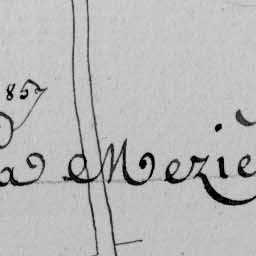 857
a Meziè